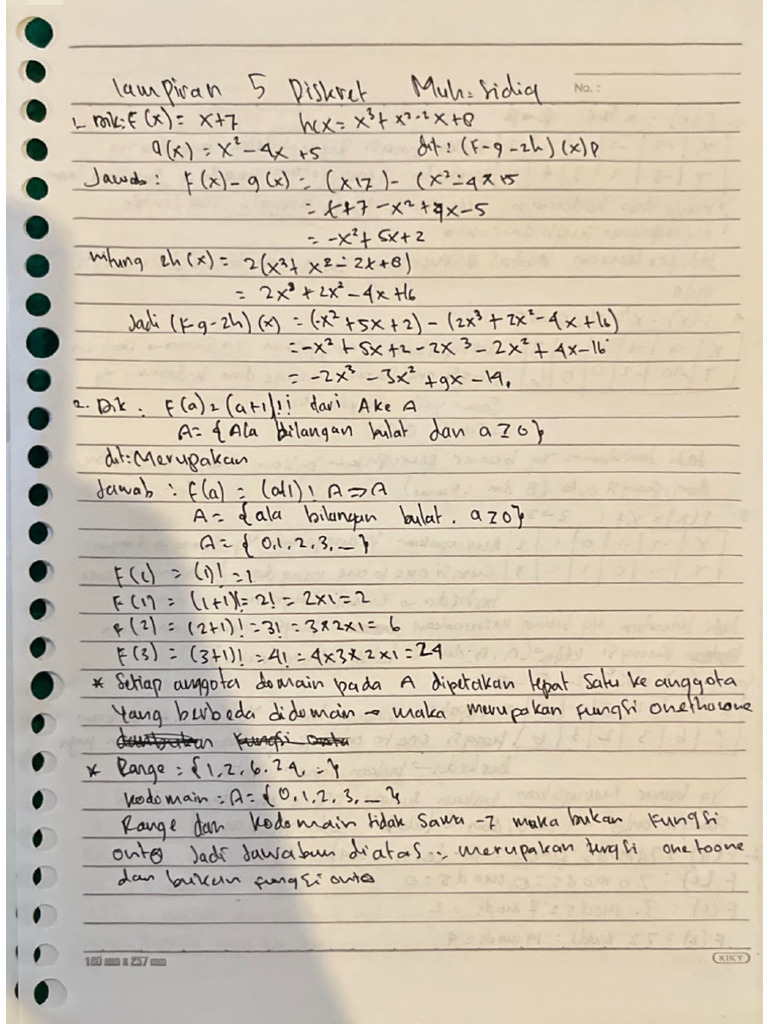 Lampiran 5 Diskret Muh. Sidiq No. :
1. Dik: F(x) = x+7 h(x = x³ + x² - 2x + 8
g(x) = x² - 4x + 5 dit : (F-g-2h) (x)?
Jawab : F(x) - g(x) = (x+7) - (x² - 4x+5
= x+7 - x² + 4x - 5
= -x² + 5x + 2
hitung 2h(x) = 2(x³ + x² - 2x + 8)
= 2x³ + 2x² - 4x + 16
Jadi (F-g-2h) (x) = (-x² + 5x + 2) - (2x³ + 2x² - 4x + 16)
= -x² + 5x + 2 - 2x³ - 2x² + 4x - 16
= -2x³ - 3x² + 9x - 14.
2. Dik : F(a) = (a+1)!! dari A ke A
A = {A|a bilangan bulat dan a ≥ 0}
dit: Merupakan
Jawab : F(a) = (a+1)! A ⇒ A
A = {a|a bilangan bulat. a ≥ 0}
A = {0,1,2,3, ...}
= (1)! = 1
F(1) = (1+1)! = 2! = 2x1 = 2
F(2) = (2+1)! = 3! = 3x2x1 = 6
F(3) = (3+1)! = 4! = 4x3x2x1 = 24
* Setiap anggota domain pada A dipetakan tepat satu ke anggota
yang berbeda didomain → maka merupakan fungsi
fungsi onto
* Range = {1, 2, 6, 24, }
kodomain = A = {0, 1, 2, 3, ...}
Range dan kodomain tidak sama → maka bukan Fungsi
onto Jadi Jawaban diatas merupakan fungsi onetoone
dan bukan fungsi onto
180 mm x 257 mm KIKY